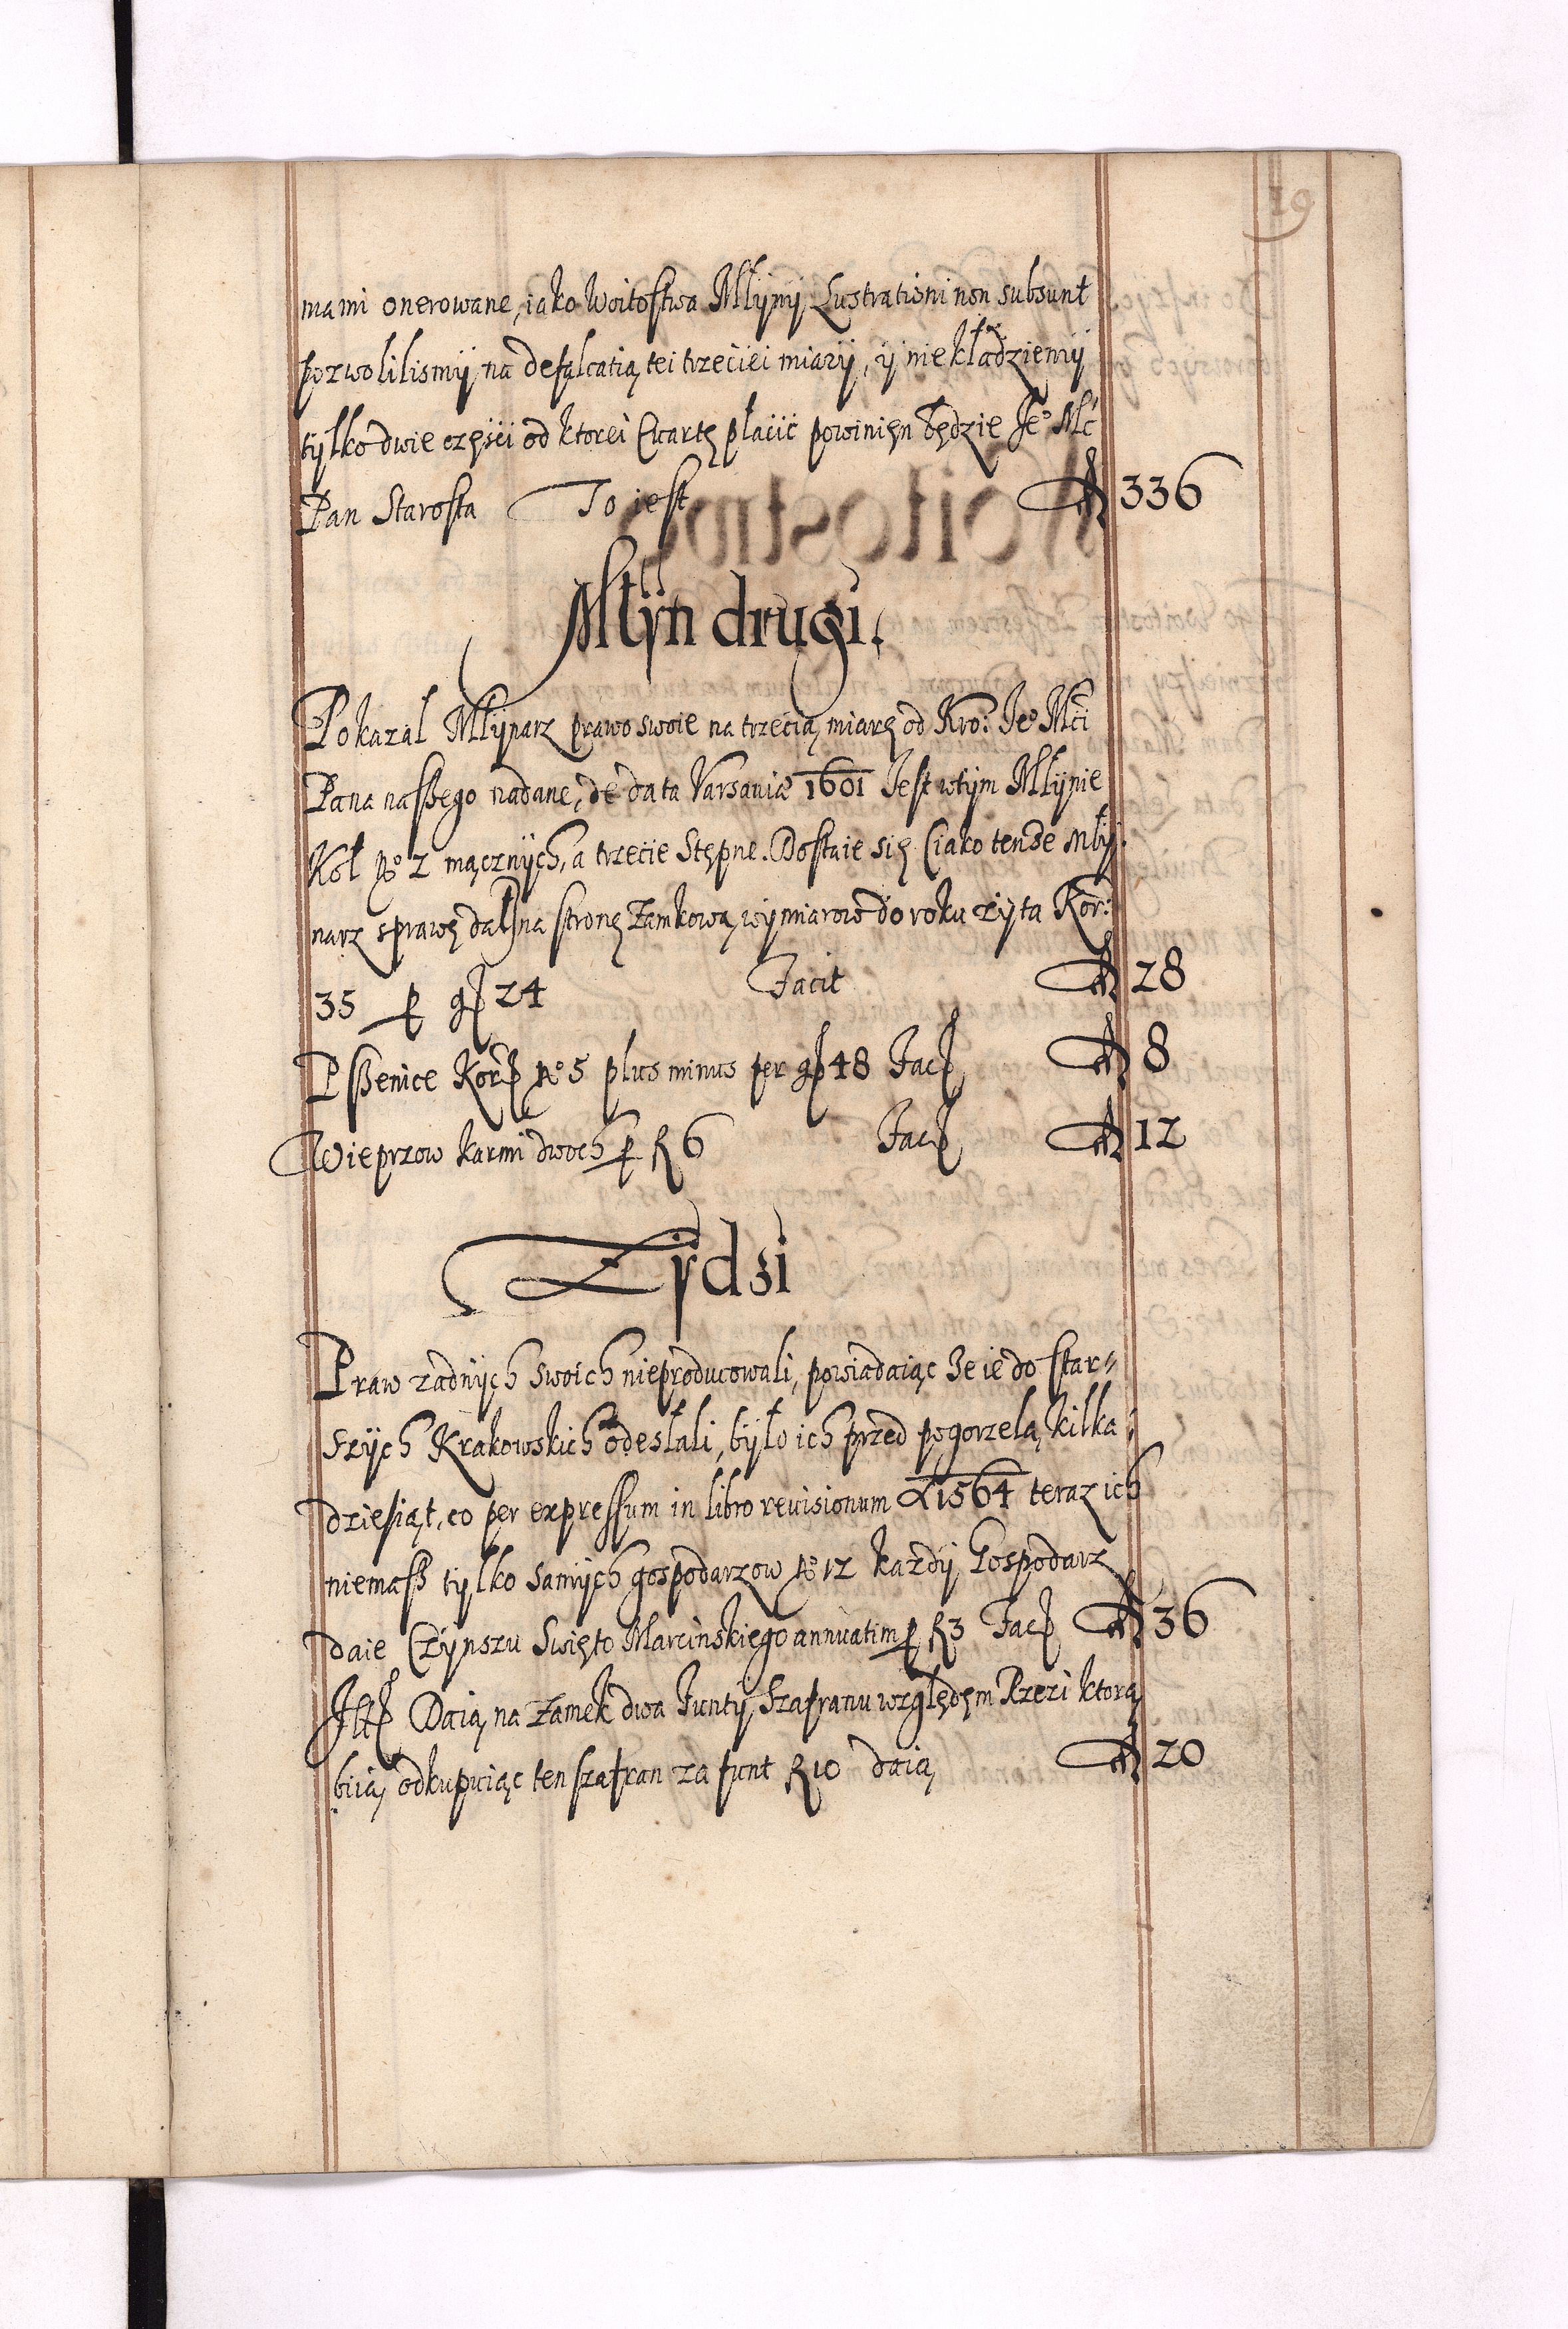 19
mami onerowane, iako Woitostwa Młÿnÿ Lustrationi non subsunt
pozwolilismÿ na defalcatią tei trzeciei miarÿ, ÿ niekładziemÿ
tÿlko dwie częsci od ktorei Cwartę płacic powinięn będzie Je° Mć
Pan Starosta To iest fl 336
Młÿn drugi.
Pokazal Młÿnarz prawo swoie na trzecią miarę od Kro: Je° Mći
Pana naßego nadane, de data Varsaviæ 1601 Jest wtÿm Młÿnie
Kół N° 2 mącznÿch, a trzecie Stępne. Dostaie się (iako tenże Młÿ:
narz sprawę dał) na stronę Zamkową wÿmiarow do roku zÿta Kor:
35 p gß 24 Facit fl 28
Pßenice Korß N° 5 plus minus per gß 48 Facß fl 8
Wieprzow karmi dwoch p fl 6 Facß fl 12
Zÿdzi
Praw zadnÿch swoich nieproducowali, powiadaiąc Że ie do star-
szÿch Krakowskich odesłali, bÿło ich przed pogorzelą kilka
dziesiąt, co per expressum in libro reuisionum A 1564 teraz ich
niemaß tÿlko samÿch gospodarzow N° 12 kazdÿ Gospodarz
daie Czÿnszu Swięto Marcinskiego annuatim p fl 3 Facß fl 36
Itß Daią na Zamek dwa Funtÿ Szafranu względęm Rzezi ktorą
biią, odkupuiąc ten szafran za funt fl 10 daią fl 20